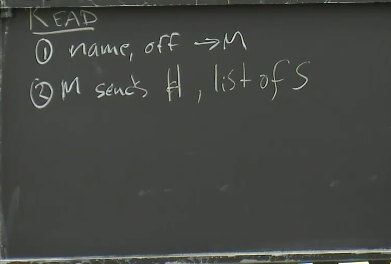 READ
① name, off → M
② M sends H, list of S